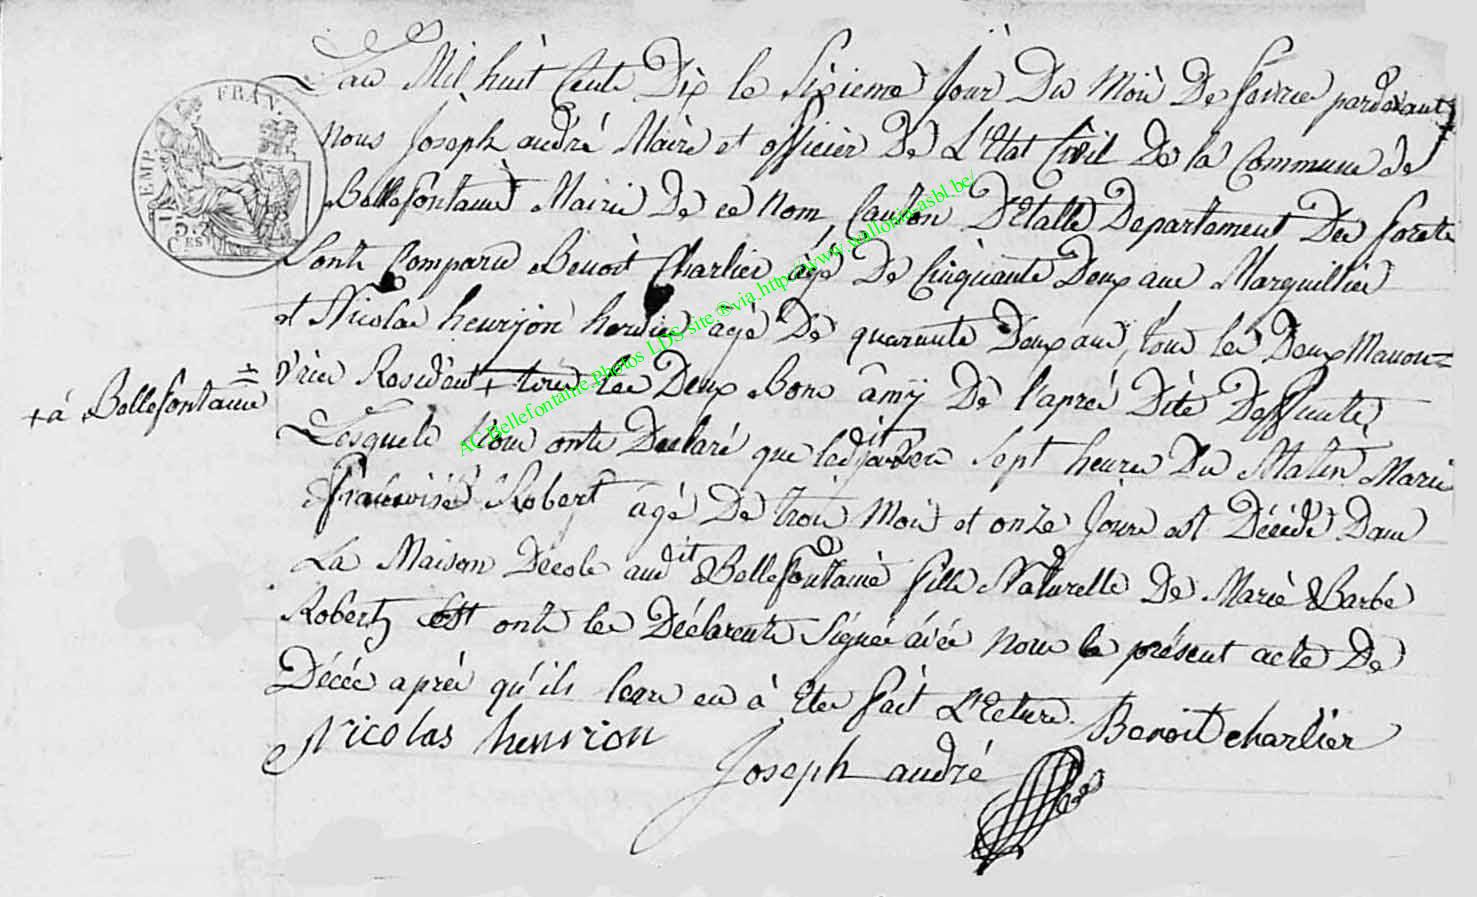 EMP. FRAN.
75 CES
L'an Mil huit Cents Dix le Sixieme Jour Du Moi De fevrier pardevant
nous Joseph andré Maire et officier De L'Etat Civil De la Commune de
Bellefontaine Mairie De ce Nom, Canton D'Etalle Departement Des forets
Sont Comparu Benoit Charlier agé De Cinquante Deux ans Marguillier
et Nicolas henrion herdier agé De quarante Deux ans, tous les Deux Manou=
+ á Bellefontaine
vrier Resident + tous les Deux Bons âmij De l'apré Dite Deffunte,
Lesquels Nous onts Declaré que ledit jour sept heures Du Matin Marie
francoise Robert agé De trois Mois et onze Jours est Décédé Dans
La Maison Décole audit Bellefontaine fille Naturelle De Marie Barbe
Robert, Est onts les Déclarents Signés avec nous le présent acte De
Décés aprés qu'ils leurs en à Eter fait L'Ecture.
Benoit charlier
Nicolas henrion
Joseph andré
AC.Bellefontaine.Photos LDS-site ®via http://www.wallonia-asbl.be/